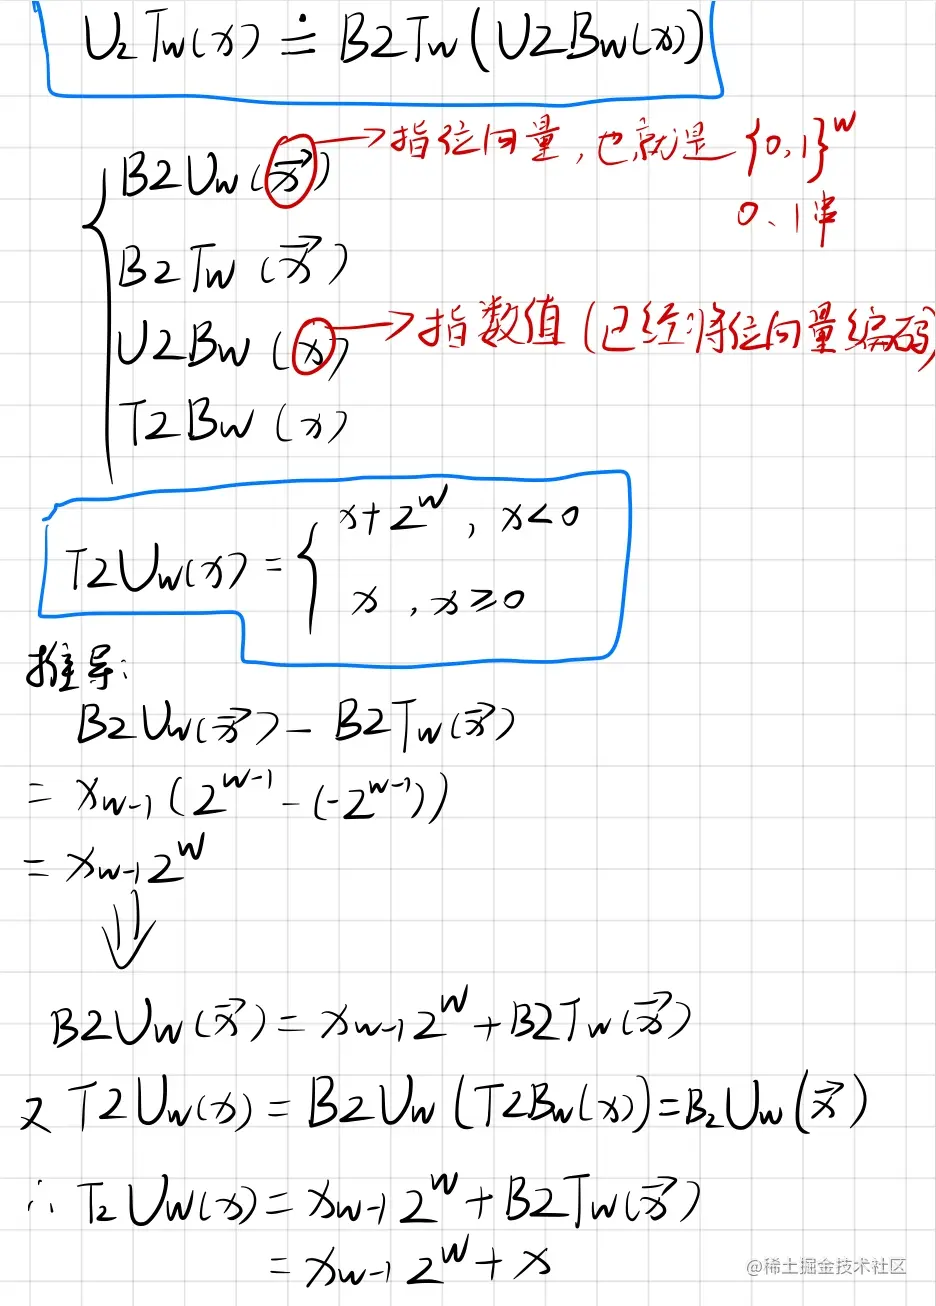 U2Tw(x) ≐ B2Tw(U2Bw(x))
B2Uw(x⃗) → 指位向量,也就是{0,1}^w
0、1串
B2Tw(x⃗)
U2Bw(x) → 指数值(已经将位向量编码)
T2Bw(x)
T2Uw(x) = { x+2^w , x<0
x , x≥0
推导:
B2Uw(x⃗) - B2Tw(x⃗)
= x_{w-1}(2^{w-1} - (-2^{w-1}))
= x_{w-1}2^w
⇓
B2Uw(x⃗) = x_{w-1}2^w + B2Tw(x⃗)
又 T2Uw(x) = B2Uw(T2Bw(x)) = B2Uw(x⃗)
∴ T2Uw(x) = x_{w-1}2^w + B2Tw(x⃗)
= x_{w-1}2^w + x
@稀土掘金技术社区